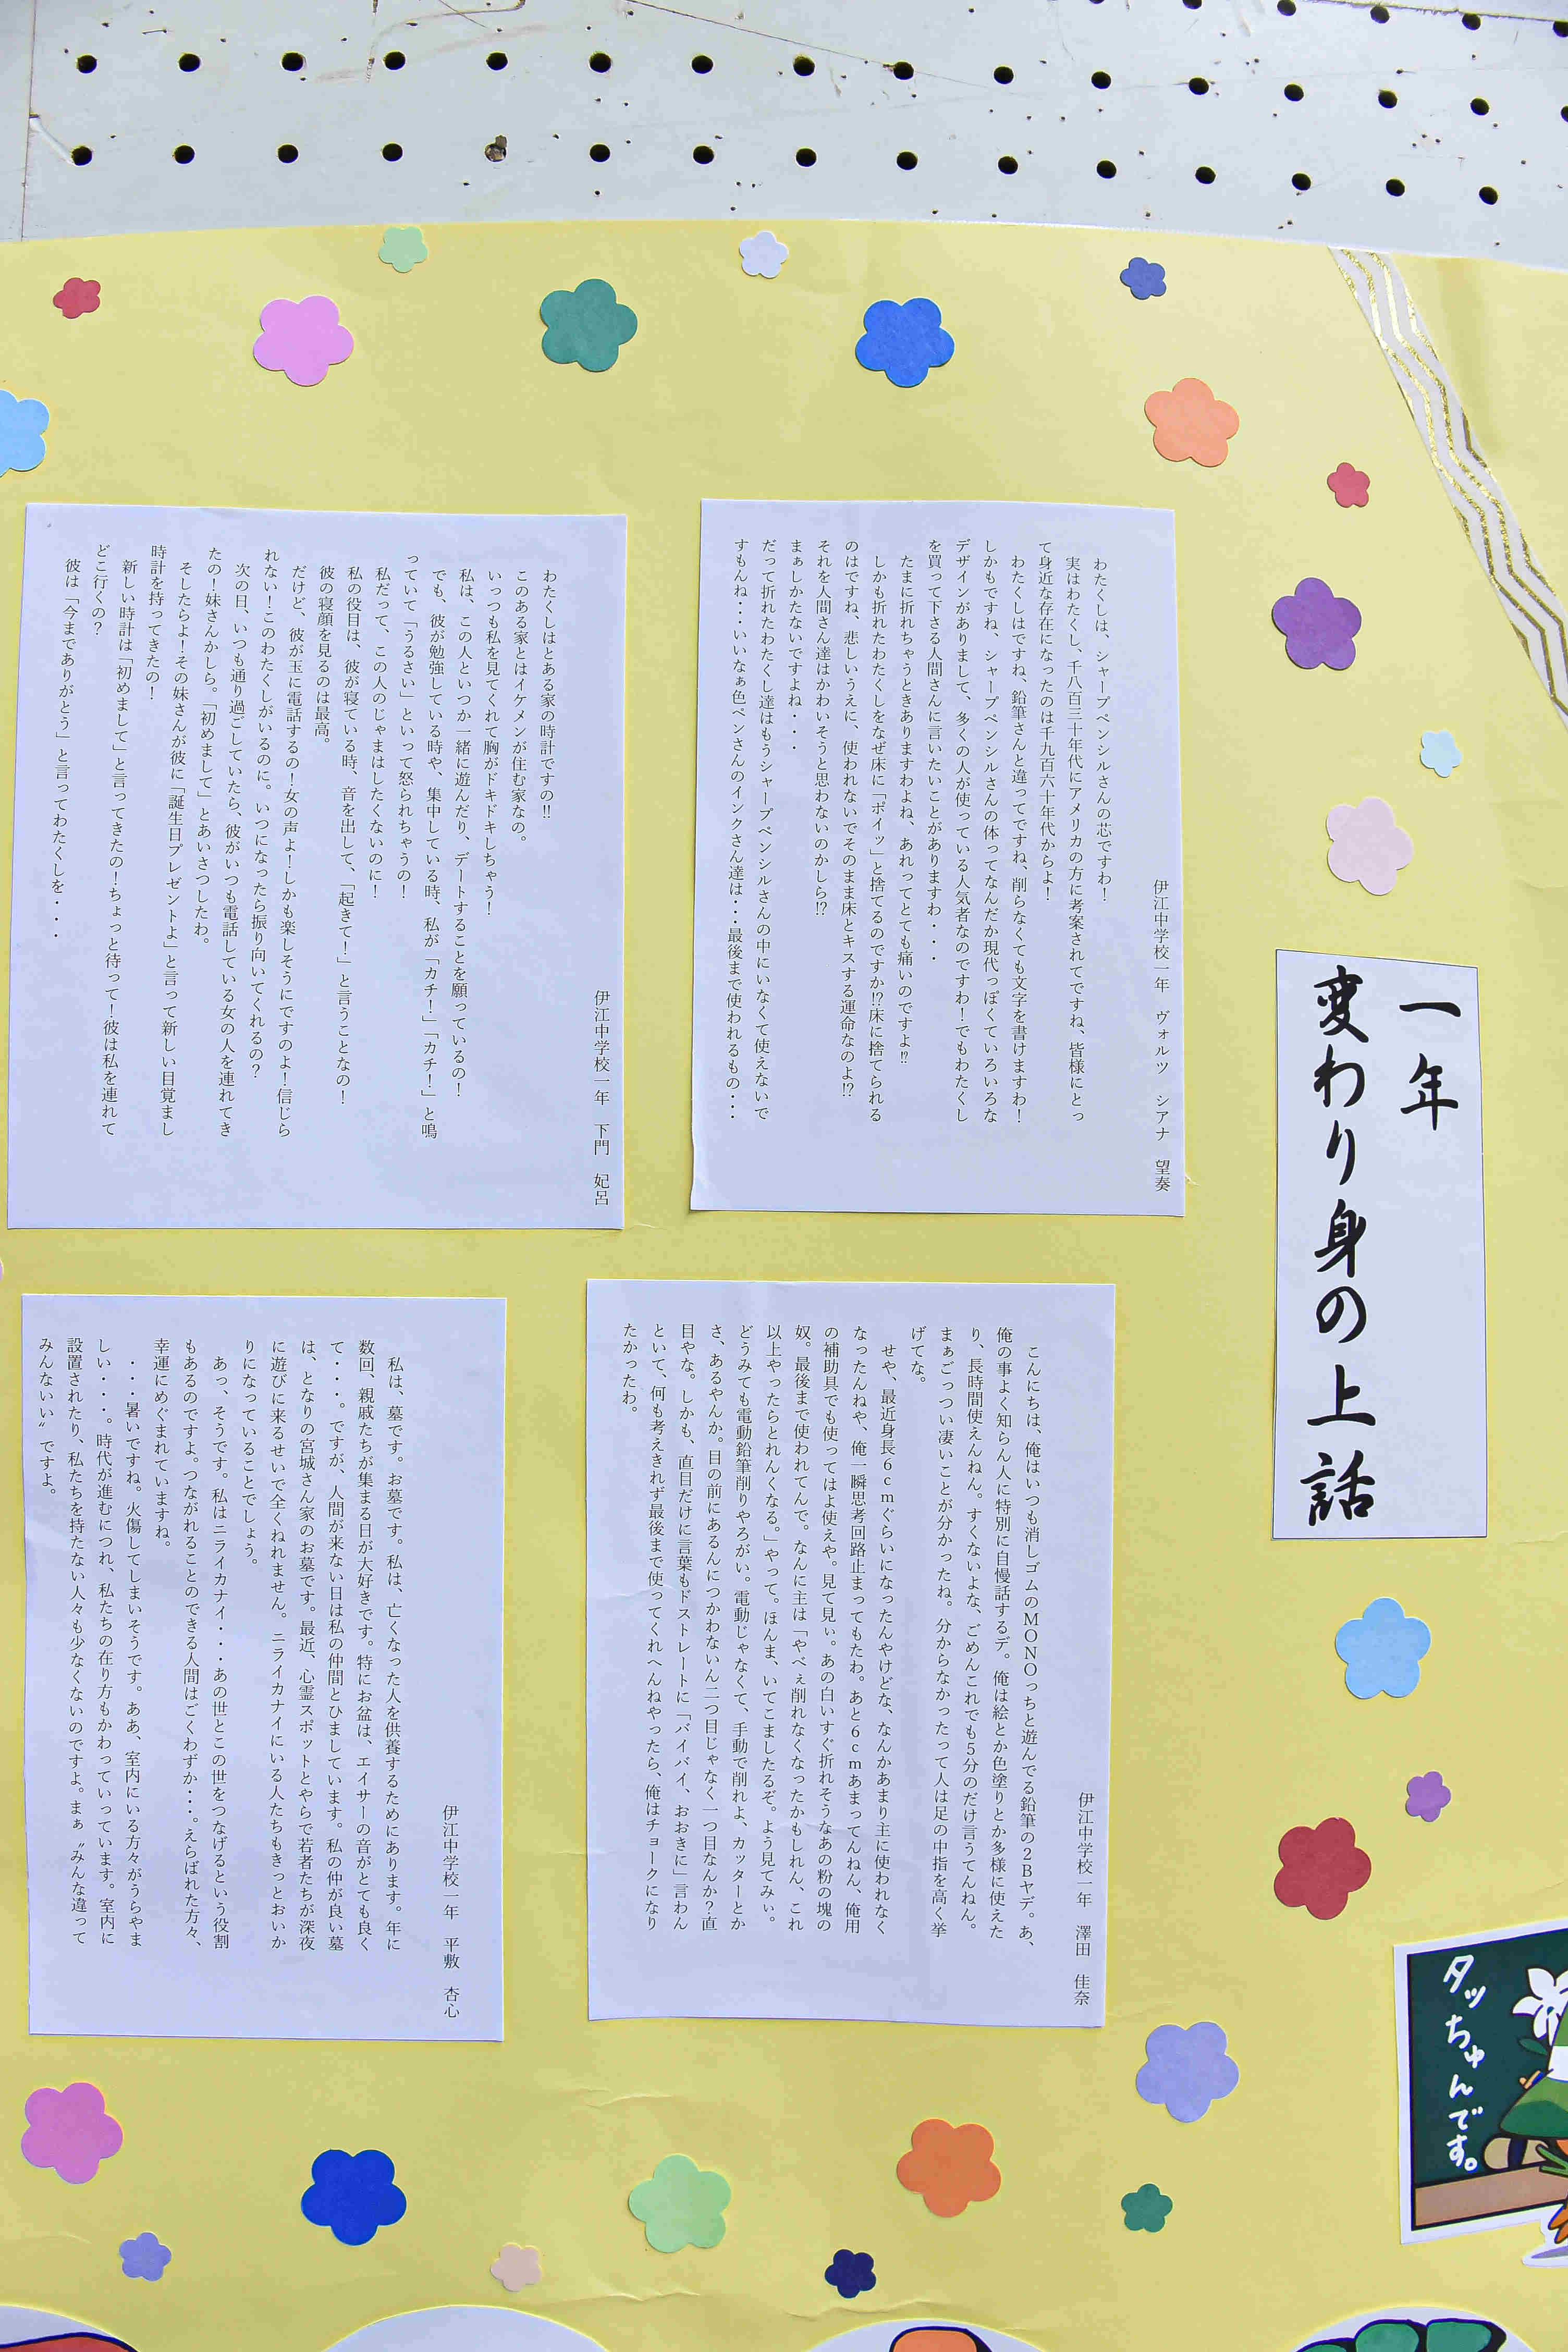 一年
変わり身の上話
伊江中学校一年 ヴォルツ シアナ 望奏
わたくしは、シャープペンシルさんの芯ですわ！
実はわたくし、千八百三十年代にアメリカの方に考案されてですね、皆様にとっ
て身近な存在になったのは千九百六十年代からよ！
わたくしはですね、鉛筆さんと違ってですね、削らなくても文字を書けますわ！
しかもですね、シャープペンシルさんの体ってなんだか現代っぽくていろいろな
デザインがありまして、多くの人が使っている人気者なのですわ！でもわたくし
を買って下さる人間さんに言いたいことがありますわ・・・
たまに折れちゃうときありますわよね、あれってとても痛いのですよ⁉
しかも折れたわたくしをなぜ床に「ポイッ」と捨てるのですか⁉床に捨てられる
のはですね、悲しいうえに、使われないでそのまま床とキスする運命なのよ⁉
それを人間さん達はかわいそうと思わないのかしら⁉
まぁしかたないですよね・・・
だって折れたわたくし達はもうシャープペンシルさんの中にいなくて使えないで
すもんね・・・いいなぁ色ペンさんのインクさん達は・・・最後まで使われるもの・・・
伊江中学校一年 下門 妃呂
わたくしはとある家の時計ですの‼
このある家とはイケメンが住む家なの。
いっつも私を見てくれて胸がドキドキしちゃう！
私は、この人といつか一緒に遊んだり、デートすることを願っているの！
でも、彼が勉強している時や、集中している時、私が「カチ！」「カチ！」と鳴
っていて「うるさい」といって怒られちゃうの！
私だって、この人のじゃまはしたくないのに！
私の役目は、彼が寝ている時、音を出して、「起きて！」と言うことなの！
彼の寝顔を見るのは最高。
だけど、彼が玉に電話するの！女の声よ！しかも楽しそうにですのよ！信じら
れない！このわたくしがいるのに。いつになったら振り向いてくれるの？
次の日、いつも通り過ごしていたら、彼がいつも電話している女の人を連れてき
たの！妹さんかしら。「初めまして」とあいさつしたわ。
そしたらよ！その妹さんが彼に「誕生日プレゼントよ」と言って新しい目覚まし
時計を持ってきたの！
新しい時計は「初めまして」と言ってきたの！ちょっと待って！彼は私を連れて
どこ行くの？
彼は「今までありがとう」と言ってわたくしを・・・
伊江中学校一年 澤田 佳奈
こんにちは、俺はいつも消しゴムのMONOっちと遊んでる鉛筆の2Bヤデ。あ、
俺の事よく知らん人に特別に自慢話するデ。俺は絵とか色塗りとか多様に使えた
り、長時間使えんねん。すくないよな、ごめんこれでも5分のだけ言うてんねん。
まぁごっつい凄いことが分かったね。分からなかったって人は足の中指を高く挙
げてな。
せや、最近身長6cmぐらいになったんやけどな、なんかあまり主に使われなく
なったんねや、俺一瞬思考回路止まってもたわ。あと6cmあまってんねん、俺用
の補助具でも使ってはよ使えや。見て見ぃ。あの白いすぐ折れそうなあの粉の塊の
奴。最後まで使われてんで。なんに主は「やべぇ削れなくなったかもしれん、これ
以上やったらとれんくなる。」やって。ほんま、いてこましたるぞ。よう見てみぃ。
どうみても電動鉛筆削りやろがい。電動じゃなくて、手動で削れよ、カッターとか
さ、あるやんか。目の前にあるんにつかわないん二つ目じゃなく一つ目なんか？直
目やな。しかも、直目だけに言葉もドストレートに「バイバイ、おおきに」言わん
といて、何も考えきれず最後まで使ってくれへんねやったら、俺はチョークになり
たかったわ。
伊江中学校一年 平敷 杏心
私は、墓です。お墓です。私は、亡くなった人を供養するためにあります。年に
数回、親戚たちが集まる日が大好きです。特にお盆は、エイサーの音がとても良く
て・・・。ですが、人間が来ない日は私の仲間とひましています。私の仲が良い墓
は、となりの宮城さん家のお墓です。最近、心霊スポットとやらで若者たちが深夜
に遊びに来るせいで全くねれません。ニライカナイにいる人たちもきっとおいか
りになっていることでしょう。
あっ、そうです。私はニライカナイ・・・あの世とこの世をつなげるという役割
もあるのですよ。つながれることのできる人間はごくわずか・・・。えらばれた方々、
幸運にめぐまれていますね。
・・・暑いですね。火傷してしまいそうです。ああ、室内にいる方々がうらやま
しい・・・。時代が進むにつれ、私たちの在り方もかわっていっています。室内に
設置されたり、私たちを持たない人々も少なくないのですよ。まぁ〝みんな違って
みんないい〟ですよ。
タッちゅんです。